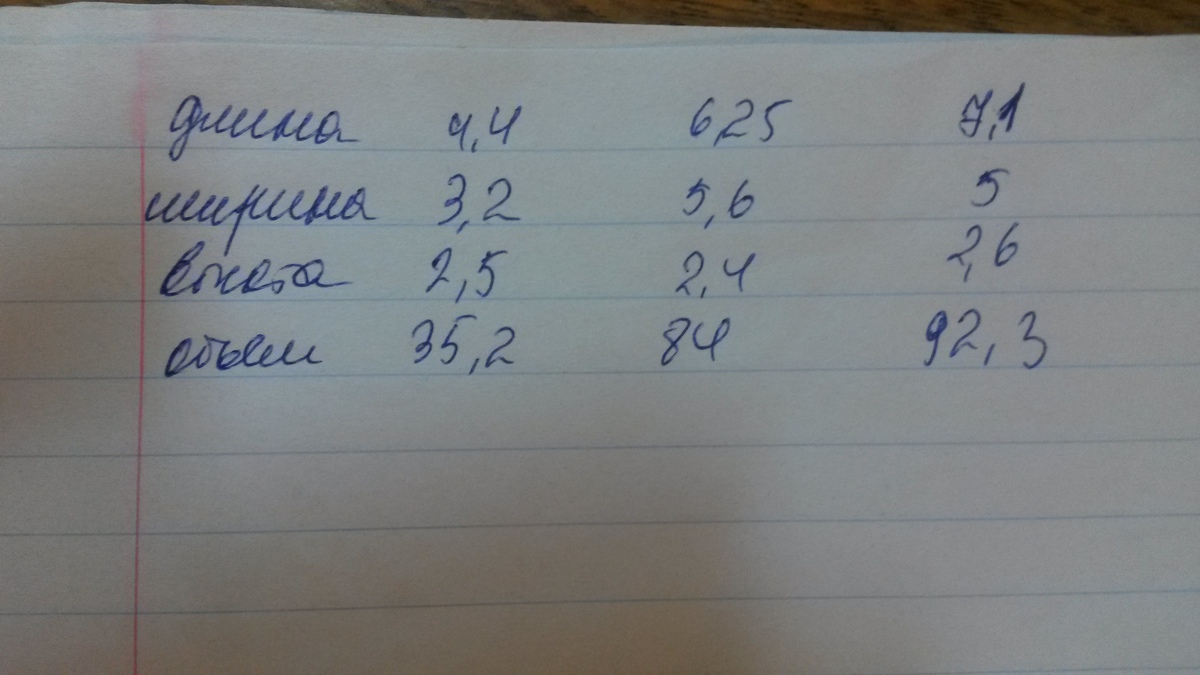 длина 4,4 6,25 7,1
ширина 3,2 5,6 5
высота 2,5 2,4 2,6
объем 35,2 84 92,3